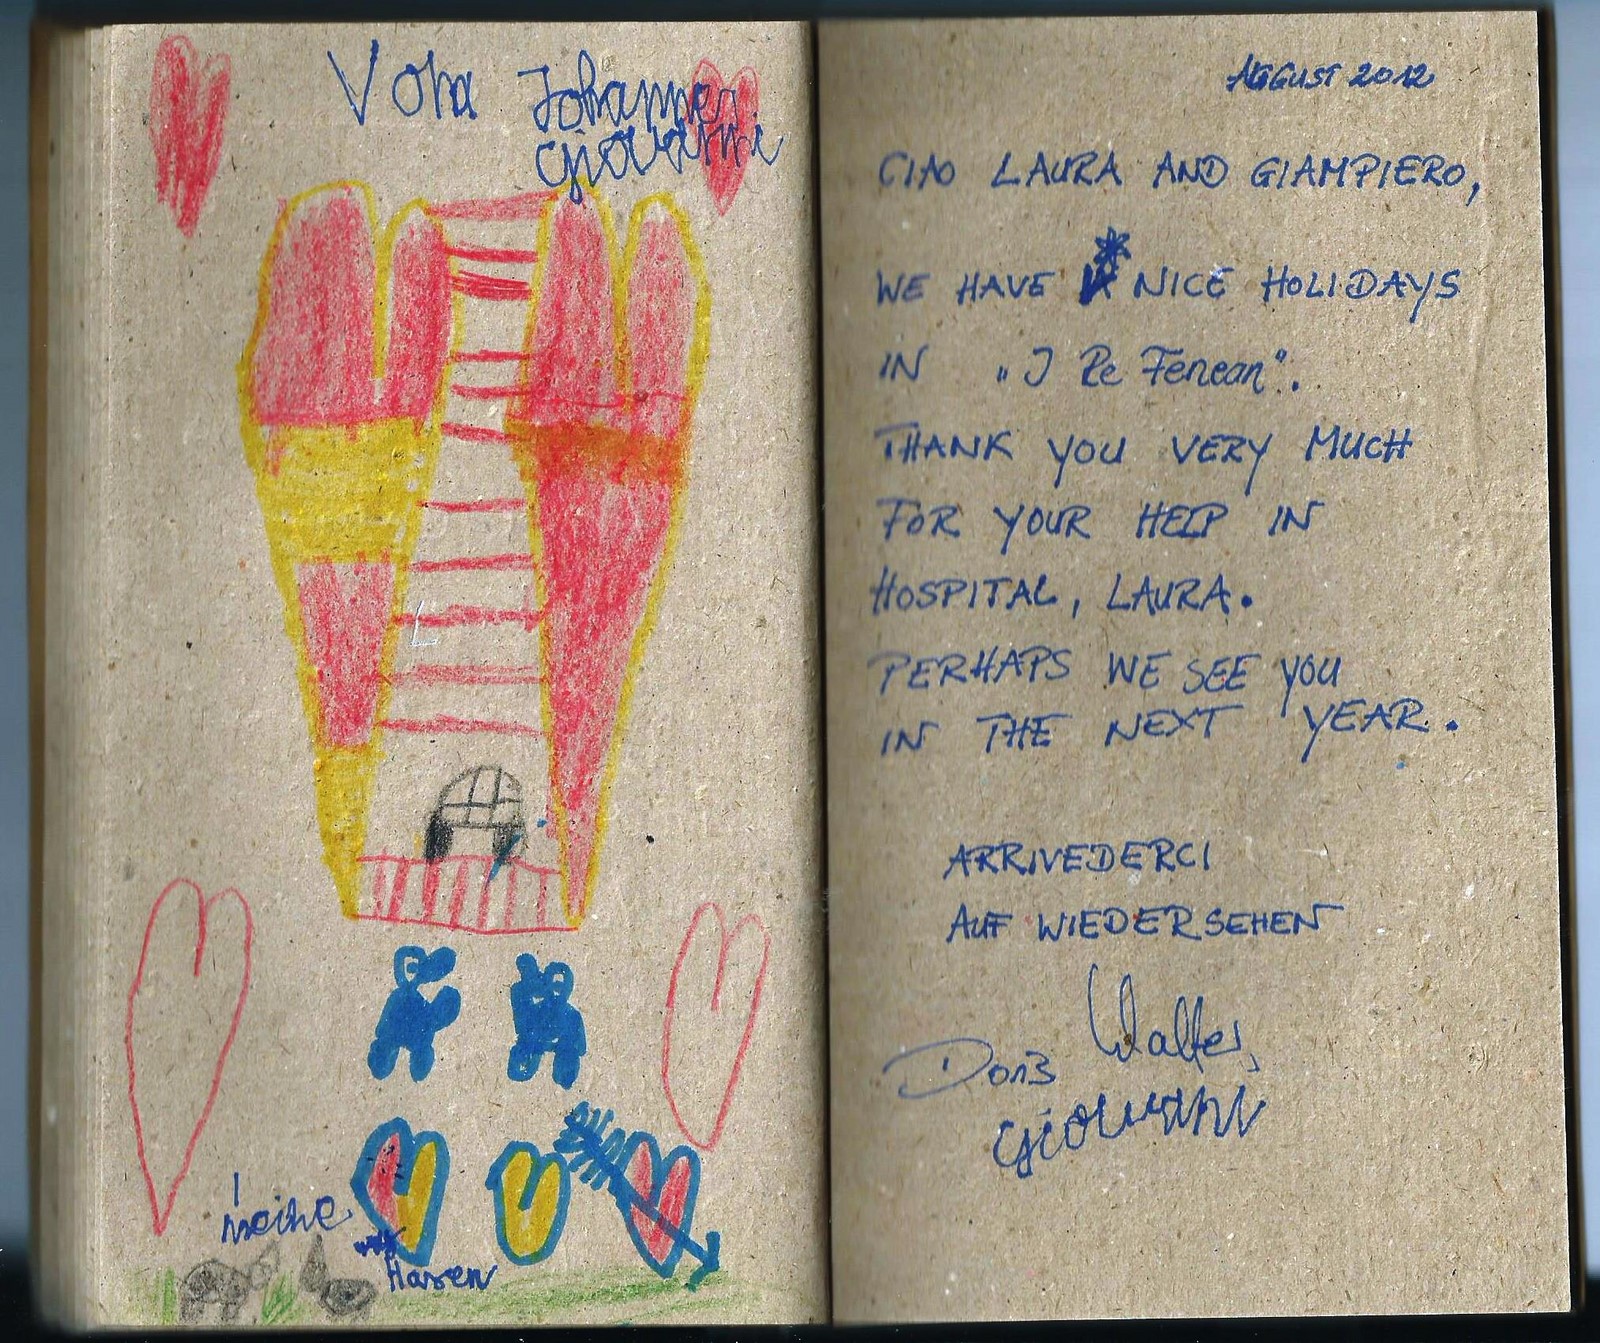 Vohn Johannes
Giovanni
meine
Hasen
AUGUST 2012
CIAO LAURA AND GIAMPIERO,
WE HAVE NICE HOLIDAYS
IN „I Re Fenean“.
THANK YOU VERY MUCH
FOR YOUR HELP IN
HOSPITAL, LAURA.
PERHAPS WE SEE YOU
IN THE NEXT YEAR.
ARRIVEDERCI
AUF WIEDERSEHEN
Walter,
Doris
Giovanni